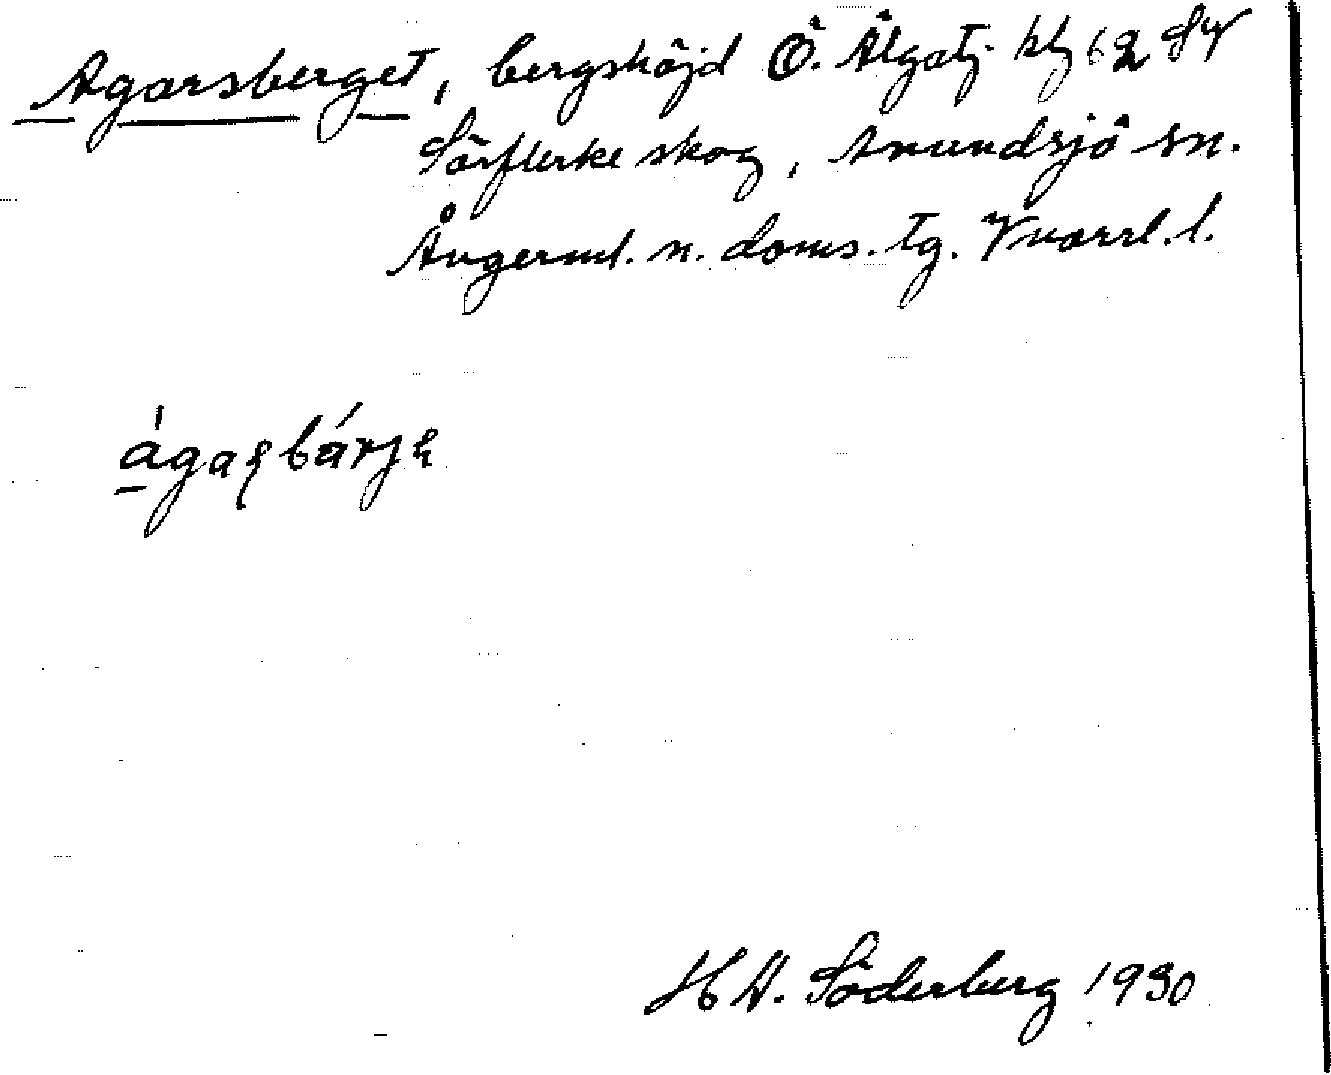 Agarsberget, bergshöjd Ö. Älgatj. kbl 62 SV
Sörflerke skog, Anundsjö sn.
Ångerml. n. doms. tg. Vnorrl. l.
ágaʂbárjɛ
H A. Söderberg 1930